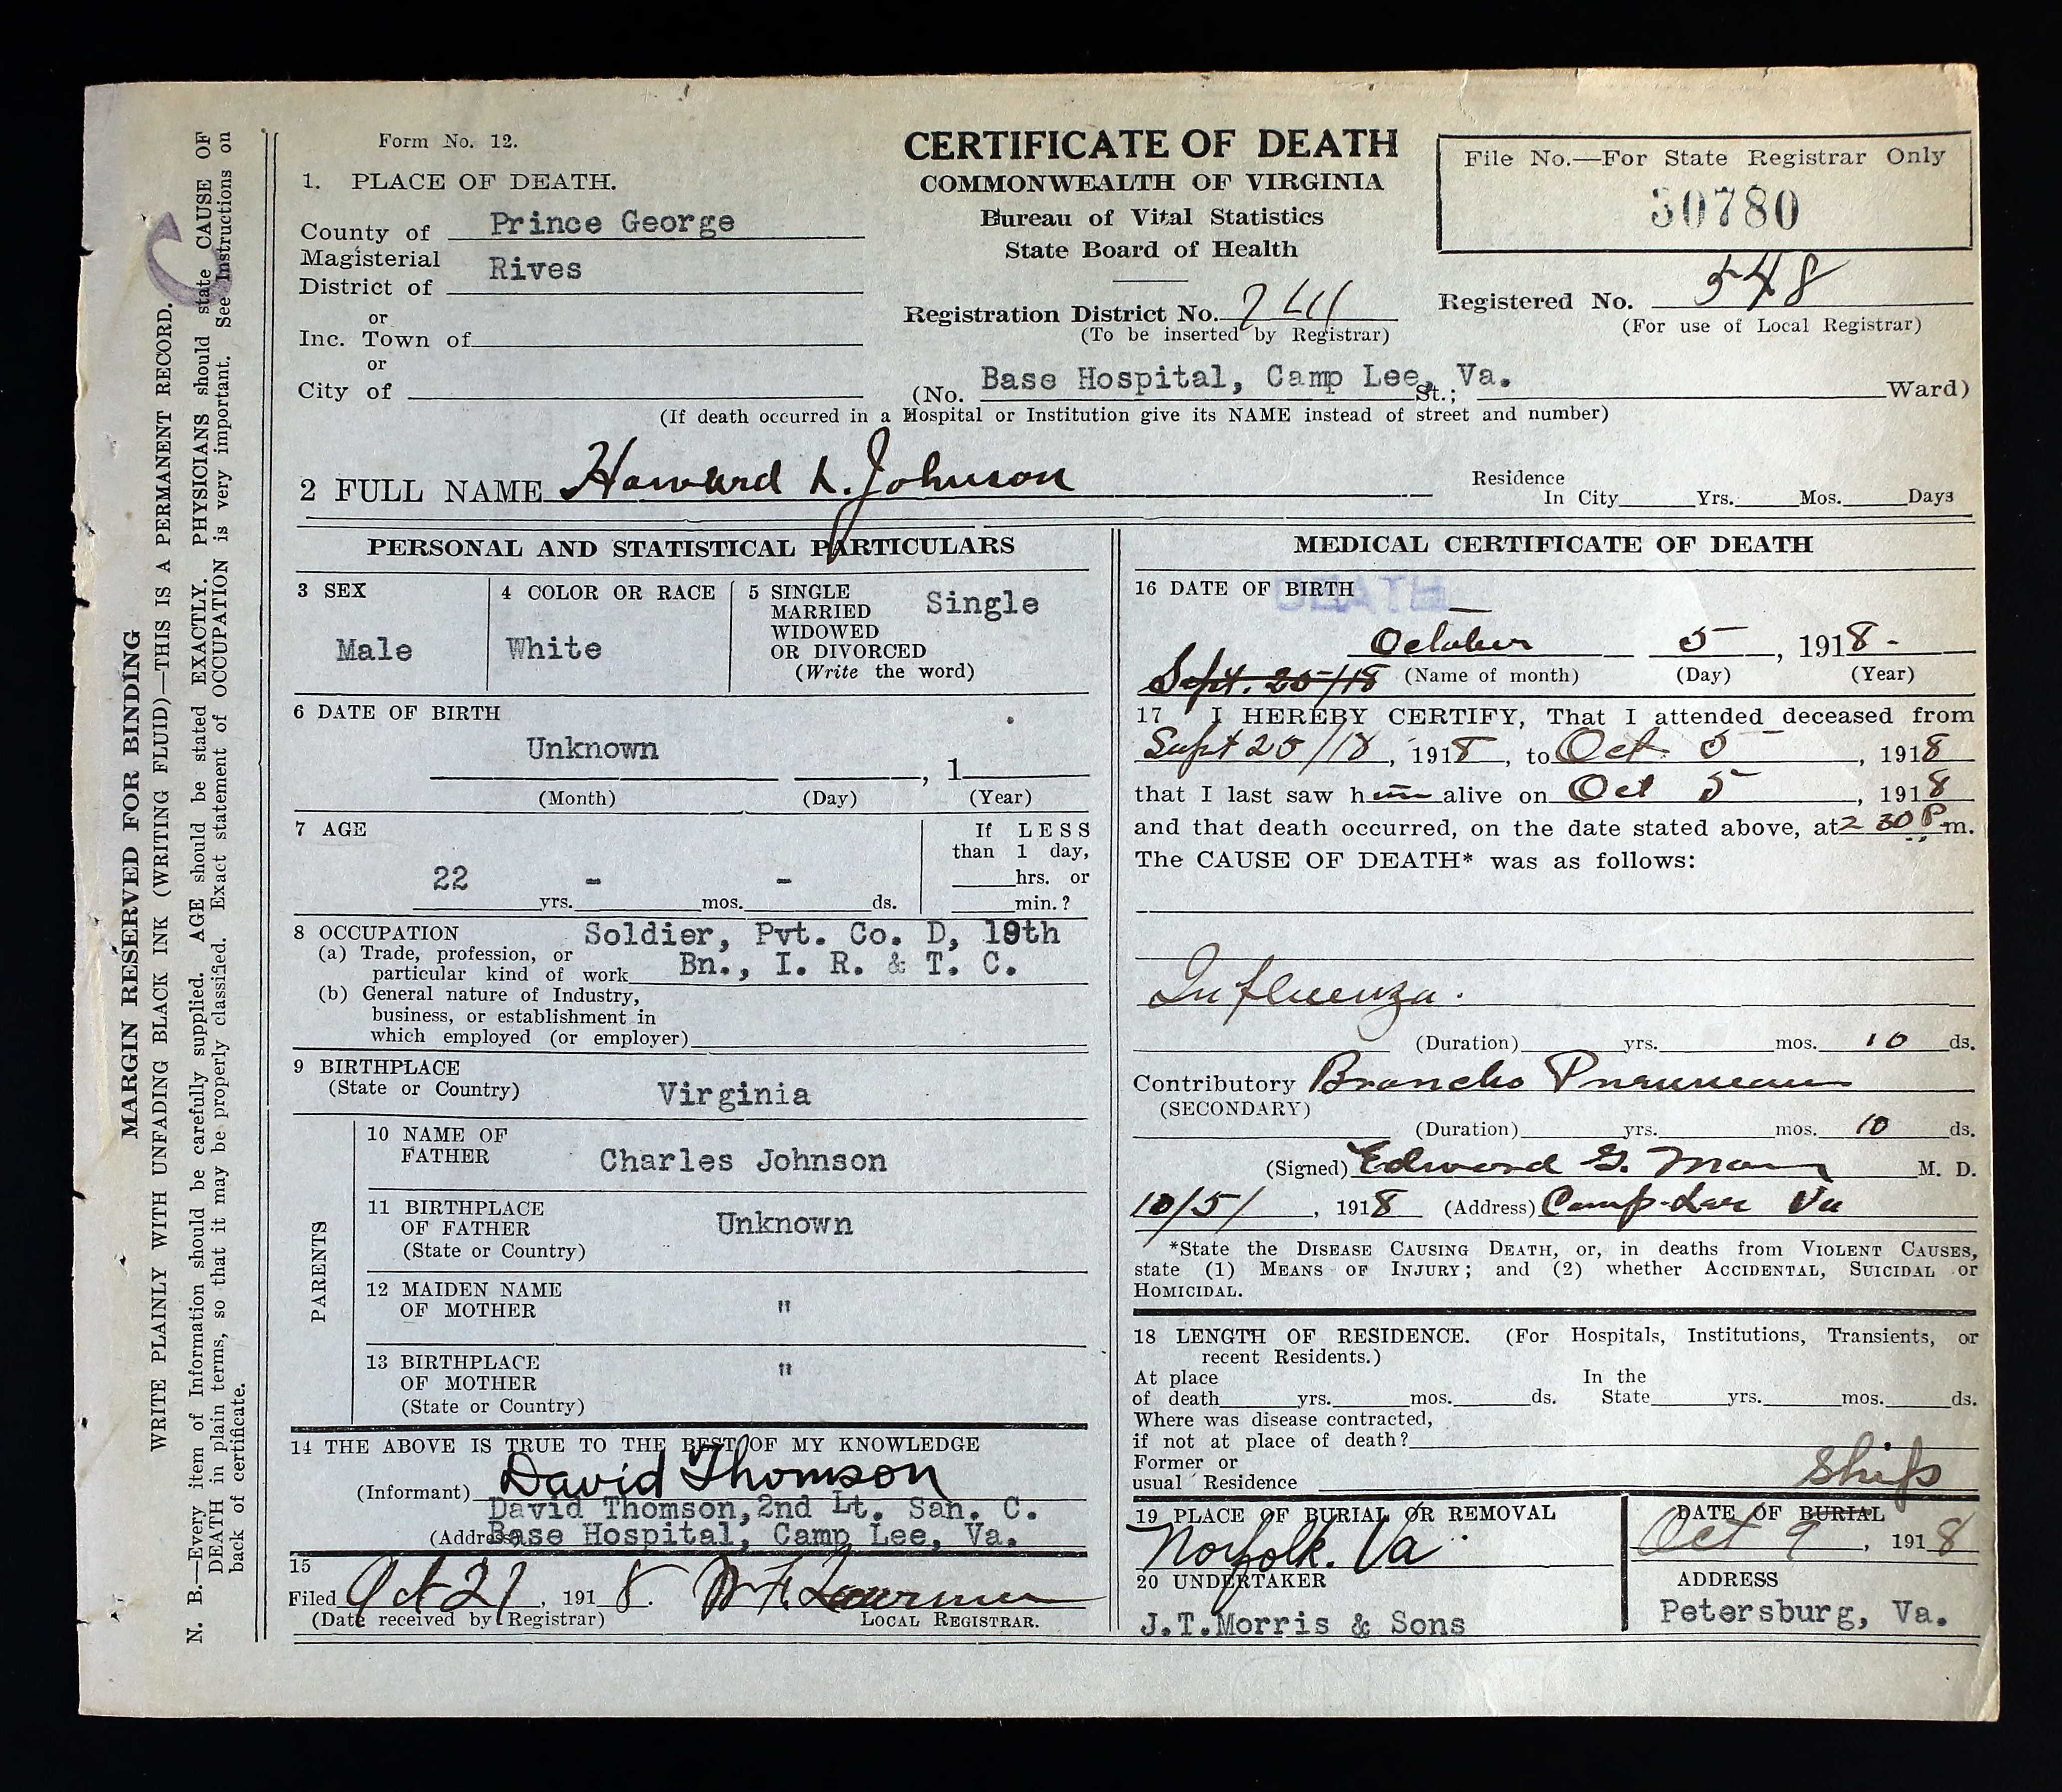 MARGIN RESERVED FOR BINDING
WRITE PLAINLY WITH UNFADING BLACK INK (WRITING FLUID)—THIS IS A PERMANENT RECORD.
N. B.—Every item of Information should be carefully supplied. AGE should be stated EXACTLY. PHYSICIANS should state CAUSE OF
DEATH in plain terms, so that it may be properly classified. Exact statement of OCCUPATION is very important. See Instructions on
back of certificate.
C
Form No. 12.
1. PLACE OF DEATH.
County of Prince George
Magisterial
District of Rives
or
Inc. Town of
or
City of
CERTIFICATE OF DEATH
COMMONWEALTH OF VIRGINIA
Bureau of Vital Statistics
State Board of Health
Registration District No.
(To be inserted by Registrar)
File No.—For State Registrar Only
30780
Registered No. 548
(For use of Local Registrar)
(No. Base Hospital, Camp Lee, Va. St.; Ward)
(If death occurred in a Hospital or Institution give its NAME instead of street and number)
2 FULL NAME Howard L. Johnson
Residence
In City Yrs. Mos. Days
PERSONAL AND STATISTICAL PARTICULARS
3 SEX
Male
4 COLOR OR RACE
White
5 SINGLE
MARRIED
WIDOWED
OR DIVORCED
(Write the word)
Single
6 DATE OF BIRTH
Unknown
, 1
(Month) (Day) (Year)
7 AGE
22 - -
yrs. mos. ds.
If LESS
than 1 day,
hrs. or
min.?
8 OCCUPATION
(a) Trade, profession, or
particular kind of work
Soldier, Pvt. Co. D, 19th
Bn., I. R. & T. C.
(b) General nature of Industry,
business, or establishment in
which employed (or employer)
9 BIRTHPLACE
(State or Country)
Virginia
PARENTS
10 NAME OF
FATHER
Charles Johnson
11 BIRTHPLACE
OF FATHER
(State or Country)
Unknown
12 MAIDEN NAME
OF MOTHER
"
13 BIRTHPLACE
OF MOTHER
(State or Country)
"
14 THE ABOVE IS TRUE TO THE BEST OF MY KNOWLEDGE
(Informant) David Thomson
David Thomson, 2nd Lt. San. C.
(Address) Base Hospital, Camp Lee, Va.
15
Filed Oct 21, 1918.
(Date received by Registrar) LOCAL REGISTRAR.
MEDICAL CERTIFICATE OF DEATH
16 DATE OF BIRTH
DEATH
October 5, 1918-
Sept. 25/18 (Name of month) (Day) (Year)
17 I HEREBY CERTIFY, That I attended deceased from
Sept 25/18, 1918, to Oct 5, 1918
that I last saw him alive on Oct 5, 1918
and that death occurred, on the date stated above, at 2 30 P.m.
The CAUSE OF DEATH* was as follows:
Influenza.
(Duration) yrs. mos. 10 ds.
Contributory Broncho Pneumonia
(SECONDARY)
(Duration) yrs. mos. 10 ds.
(Signed) Edward G. M. D.
10/5/, 1918 (Address) Camp Lee Va
*State the DISEASE CAUSING DEATH, or, in deaths from VIOLENT CAUSES,
state (1) MEANS OF INJURY; and (2) whether ACCIDENTAL, SUICIDAL or
HOMICIDAL.
18 LENGTH OF RESIDENCE. (For Hospitals, Institutions, Transients, or
recent Residents.)
At place
of death yrs. mos. ds.
In the
State yrs. mos. ds.
Where was disease contracted,
if not at place of death?
Former or
usual Residence
Ship
19 PLACE OF BURIAL OR REMOVAL
Norfolk. Va
DATE OF BURIAL
Oct 9, 1918
20 UNDERTAKER
J.T.Morris & Sons
ADDRESS
Petersburg, Va.